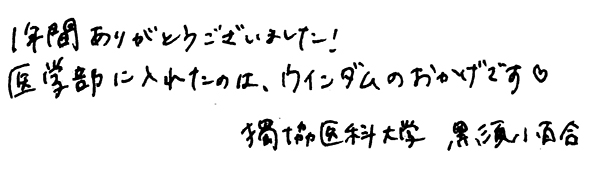 1年間ありがとうございました!
医学部に入れたのは、ウインダムのおかげです♡
獨協医科大学 黒須小百合